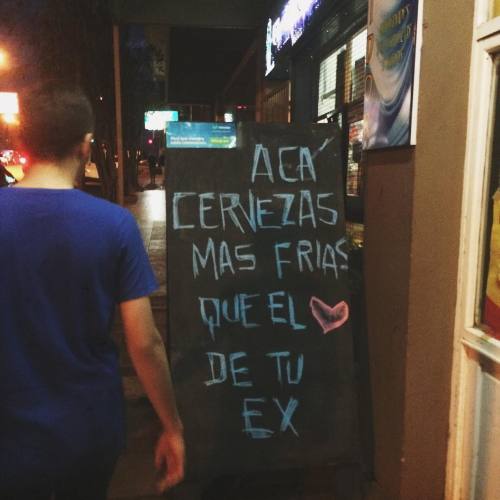 ACÁ
CERVEZAS
MAS FRIAS
QUE EL
DE TU
EX